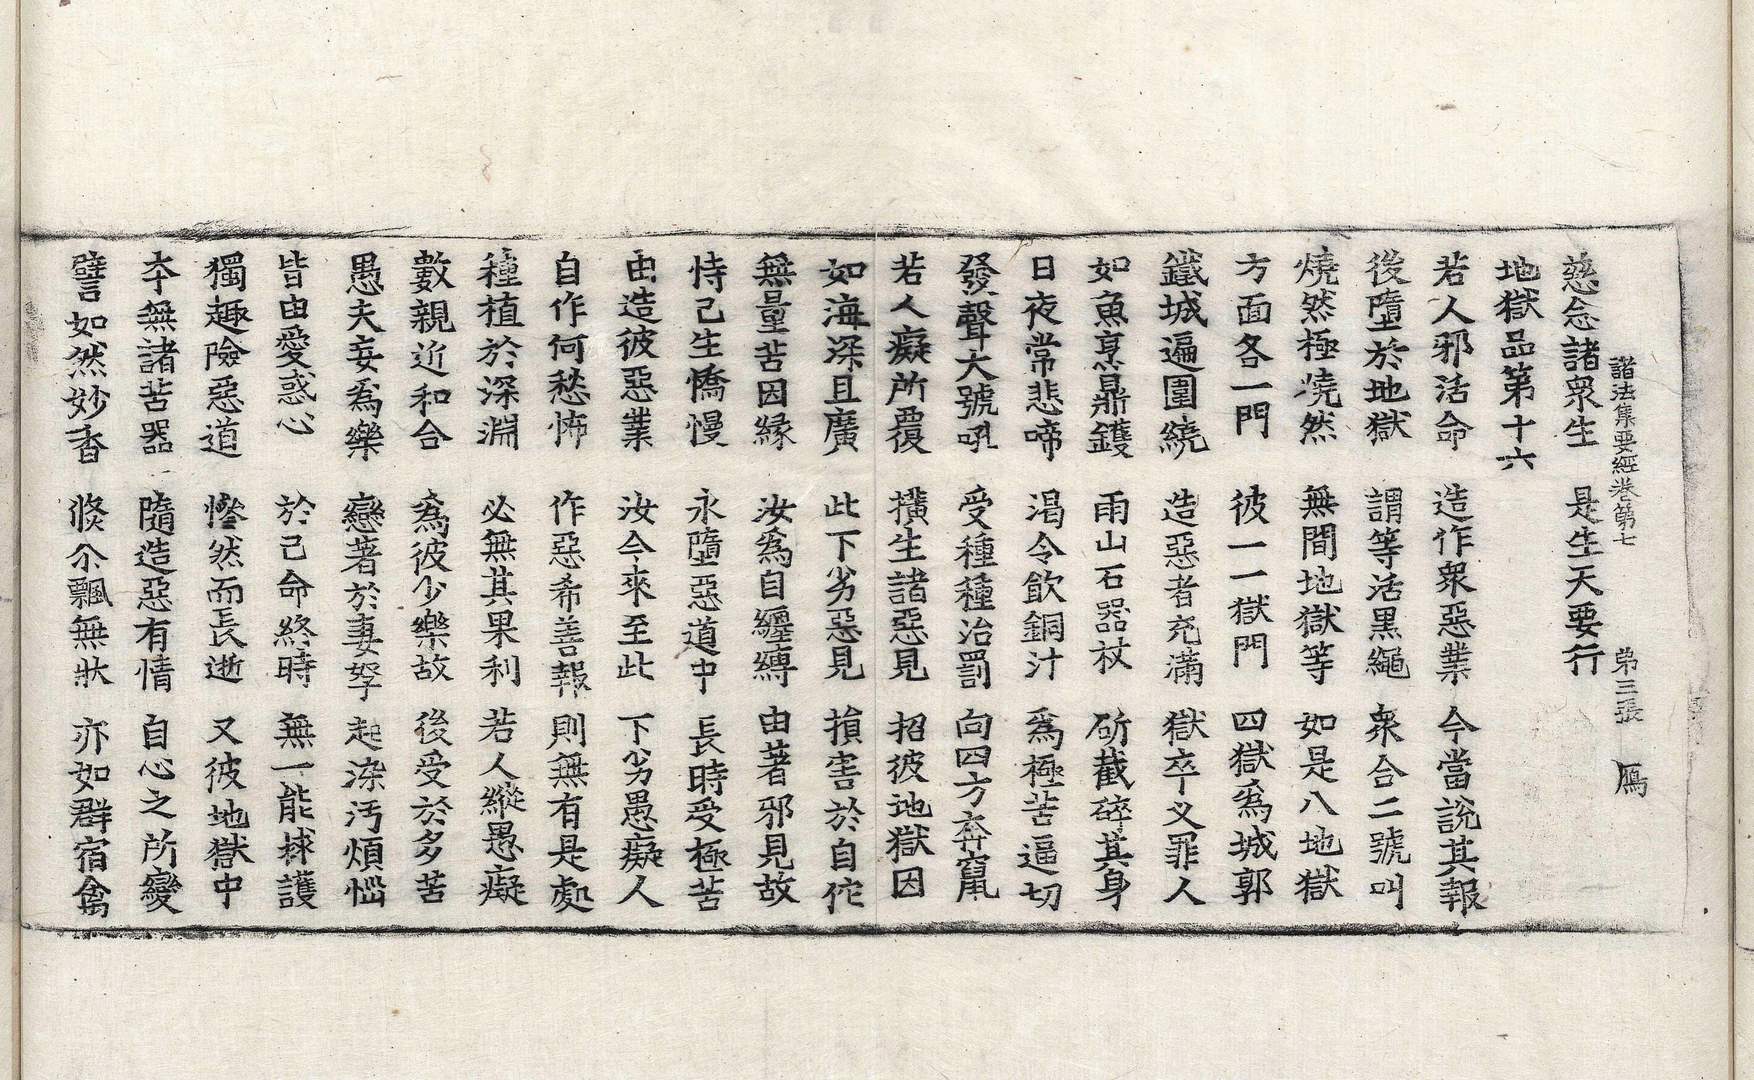 諸法集要經卷第七 第三張 鴈
慈念諸衆生 是生天要行
地獄品第十六
若人邪活命 造作衆惡業 今當説其報
後墮於地獄 謂等活黒繩 衆合二號叫
燒然極燒然 無間地獄等 如是八地獄
方面各一門 彼一一獄門 四獄爲城郭
鐵城遍圍繞 造惡者充滿 獄卒义罪人
如魚烹鼎鑊 雨山石器杖 斫截碎其身
日夜常悲啼 渴令飲銅汁 爲極苦逼切
發聲大號吼 受種種治罰 向四方奔竄
若人癡所覆 撗生諸惡見 招彼地獄因
如海深且廣 此下劣惡見 損害於自佗
無量苦因縁 汝爲自纒縛 由著邪見故
恃己生憍慢 永墮惡道中 長時受極苦
由造彼惡業 汝今來至此 下劣愚癡人
自作何愁怖 作惡希善報 則無有是處
種植於深淵 必無其果利 若人縱愚癡
數親近和合 爲彼少樂故 後受於多苦
愚夫妄爲樂 戀著於妻孥 起染汚煩惱
皆由愛惑心 於己命終時 無一能捄護
獨趣險惡道 慘然而長逝 又彼地獄中
夲無諸苦器 隨造惡有情 自心之所變
譬如然妙香 倏尒飄無狀 亦如群宿禽